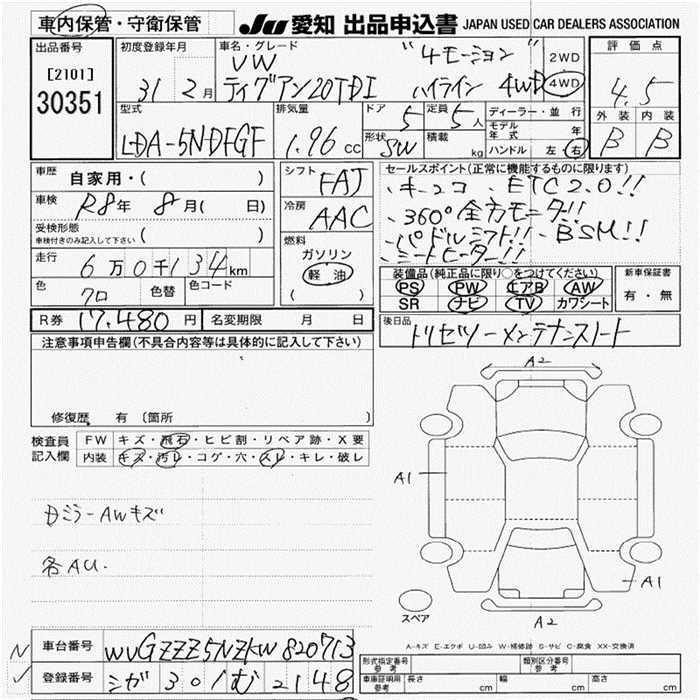 車内保管・守衛保管
JU 愛知 出品申込書 JAPAN USED CAR DEALERS ASSOCIATION
出品番号
[2101]
30351
初度登録年月
31 2月
車名・グレード
VW "4モーション"
ティグアン20TDI ハイライン 4WD
2WD
4WD
評価点
4.5
外装 内装
B B
型式
LDA-5NDFGF
排気量
1.96 cc
ドア 5
定員 5人
形状 SW
積載 kg
ディーラー・並行
モデル年式 年
ハンドル 左 右
車歴 自家用・( )
車検 R8年 8月( 日)
受検形態
車検付きのみ記入して下さい ( )
走行 6万0千134km
色 クロ 色替 色コード
シフト FAT
冷房 AAC
燃料
ガソリン
軽油
( )
セールスポイント(正常に機能するものに限ります)
・キーユコ・ETC2.0!!
・360°全方モニタ!!
・パドルシフト!!・BSM!!
・シートヒーター!!
装備品(純正品に限り○をつけてください)
PS PW エアB AW
SR ナビ TV カワシート
新車保証書
有・無
R券 17,480円 名変期限 月 日
後日品
トリセツーメンテナンスノート
注意事項申告欄(不具合内容等は具体的に記入して下さい)
修復歴 有 〔箇所
検査員
記入欄
FW キズ・飛石・ヒビ割・リペア跡・X要
内装 キズ・汚レ・コゲ・穴・スレ・キレ・破レ
Dミラー AWキズ
各AU.
A2
A1
A1
A2
スペア
A-キズ E-エクボ U-凹み W-補修跡 S-サビ C-腐食 XX-交換済
N 車台番号 WVGZZZ5NZKW820713
✓ 登録番号 シガ 301 む 2148
形式指定番号
参考
類別区分番号
参考
車庫証明用
参考
長さ cm
幅 cm
高さ cm